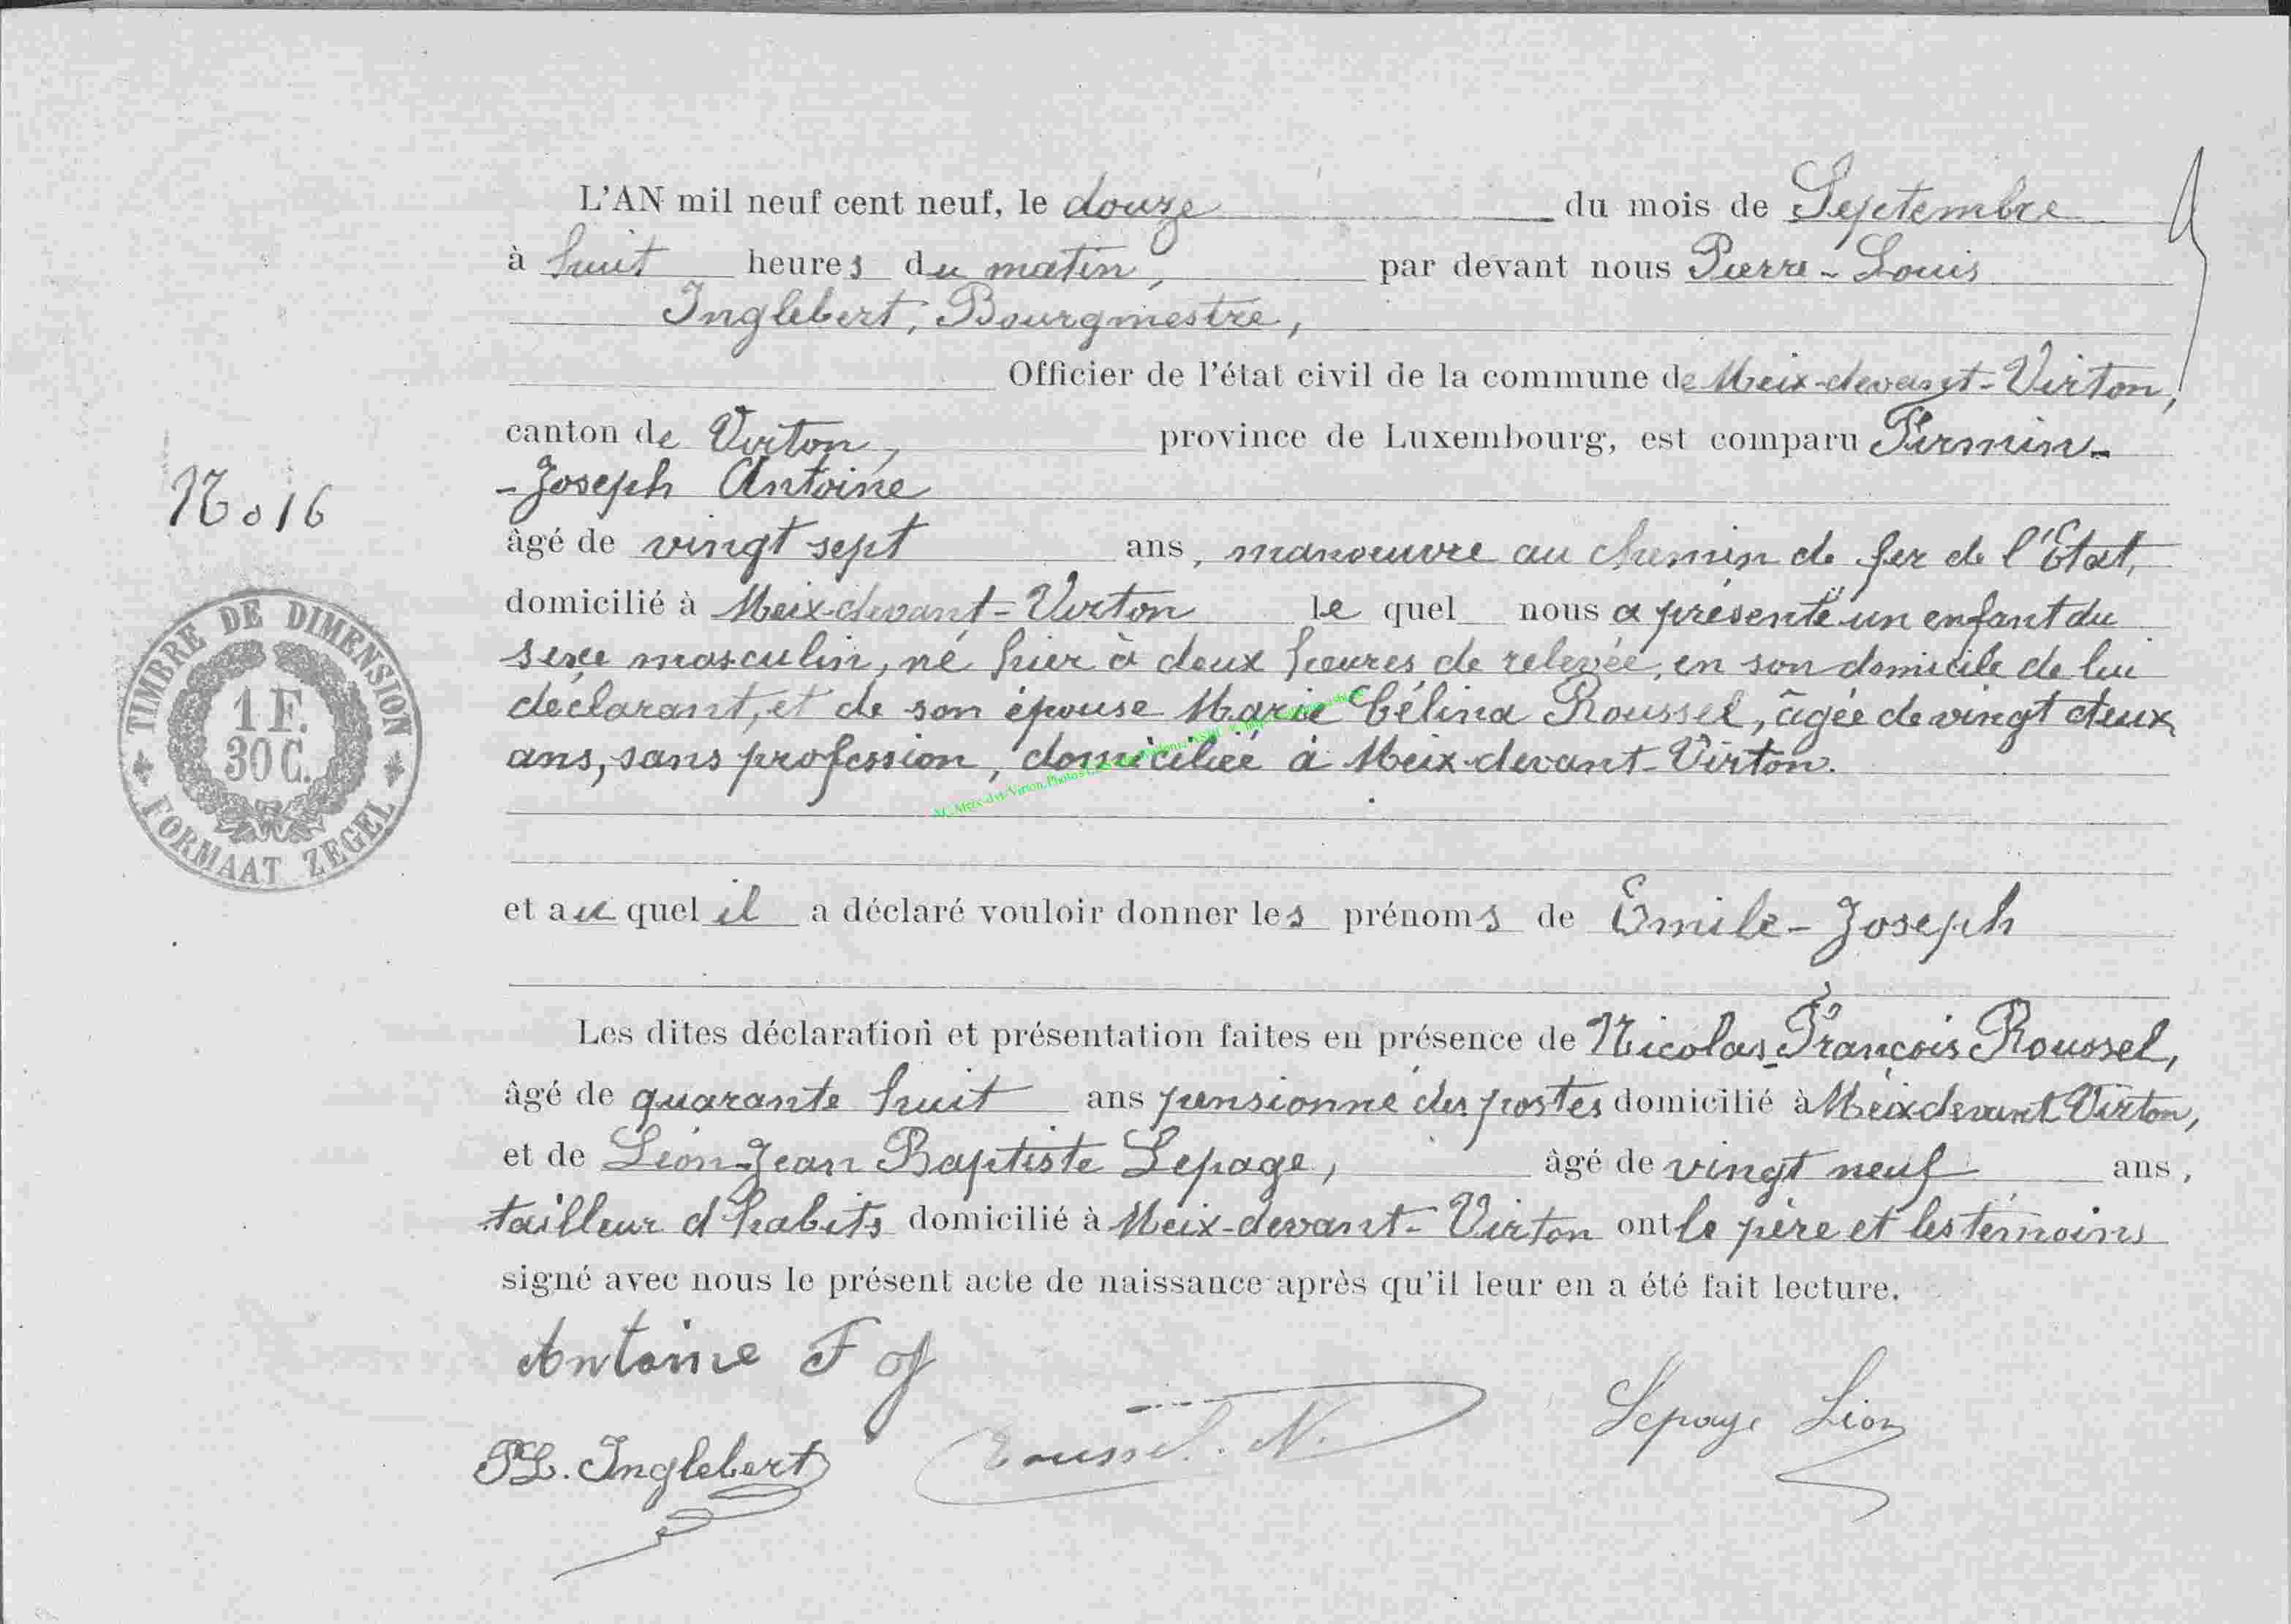 L'AN mil neuf cent neuf, le douze du mois de Septembre
à huit heures du matin, par devant nous Pierre-Louis
Inglebert, Bourgmestre,
Officier de l'état civil de la commune de Meix-devant-Virton,
canton de Virton, province de Luxembourg, est comparu Firmin-
-Joseph Antoine
No 16
âgé de vingt sept ans, manoeuvre au chemin de fer de l'Etat,
domicilié à Meix-devant-Virton lequel nous a présenté un enfant du
sexe masculin, né hier à deux heures de relevée, en son domicile de lui
déclarant, et de son épouse Marie Célina Roussel, âgée de vingt deux
ans, sans profession, domiciliée à Meix-devant-Virton.
TIMBRE DE DIMENSION
1 F.
30 C.
FORMAAT ZEGEL
et au quel il a déclaré vouloir donner les prénoms de Emile-Joseph
Les dites déclaration et présentation faites en présence de Nicolas-François Roussel,
âgé de quarante huit ans pensionné des postes domicilié à Meix devant Virton,
et de Léon-Jean Baptiste Lepage, âgé de vingt neuf ans,
tailleur d'habits domicilié à Meix-devant-Virton ont le père et les témoins
signé avec nous le présent acte de naissance après qu'il leur en a été fait lecture.
Antoine F J
Lepage Léon
Roussel. N.
PL. Inglebert